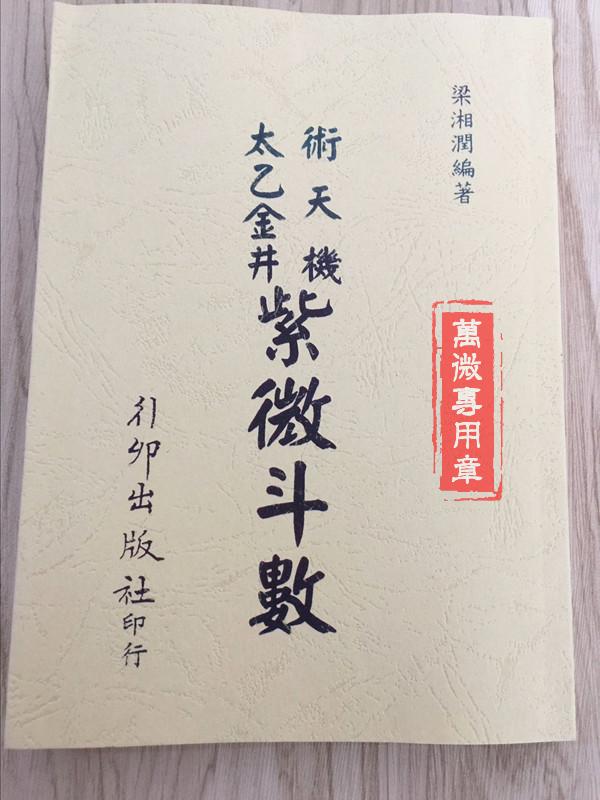 梁湘潤編著
術天機
太乙金井
紫微斗數
行卯出版社印行
萬微專用章